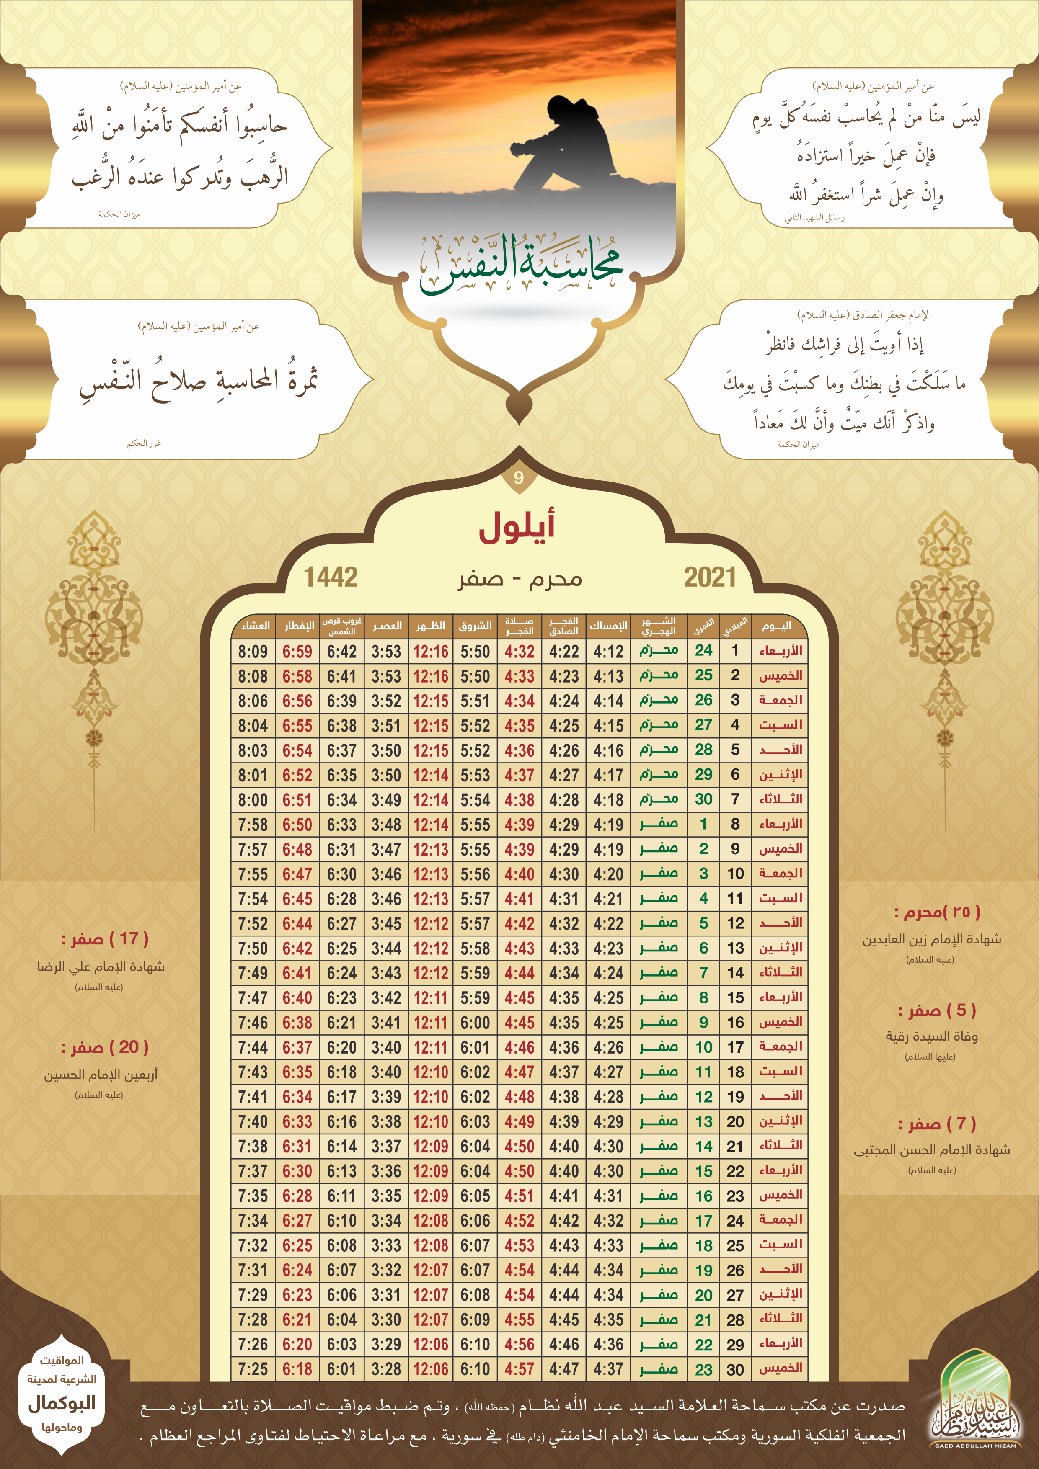 عن أمير المؤمنين (عليه السلام)
ليسَ منّا منْ لم يُحاسبْ نفسَهُ كلَّ يومٍ
فإنْ عمِلَ خيراً استزادَهُ
وإنْ عمِلَ شراً استغفرُ اللّه
رسائل الشهيد الثاني
عن أمير المؤمنين (عليه السلام)
حاسِبُوا أنفسَكم تأمَنُوا منْ اللَّهِ
الرَّهبَ وتُدركوا عندَهُ الرَّغب
ميزان الحكمة
مُحاسَبَةُ النَّفْسِ
الإمام جعفر الصادق (عليه السلام)
إذا أويتَ إلى فراشِك فانظرْ
ما سَلَكْتَ في بطنِكَ وما كسبْتَ في يومِكَ
واذكرْ أنّك ميّتٌ وأنَّ لكَ مَعاداً
ميزان الحكمة
عن أمير المؤمنين (عليه السلام)
ثمرةُ المحاسبةِ صلاحُ النّفْسِ
غرر الحكم
9
أيلول
2021 محرم - صفر 1442
اليوم الميلادي القمري الشهر الهجري الإمساك الفجر الصادق صلاة الفجر الشروق الظهر العصر غروب قرص الشمس الإفطار العشاء
الأربعاء 1 24 محرم 4:12 4:22 4:32 5:50 12:16 3:53 6:42 6:59 8:09
الخميس 2 25 محرم 4:13 4:23 4:33 5:50 12:16 3:53 6:41 6:58 8:08
الجمعة 3 26 محرم 4:14 4:24 4:34 5:51 12:15 3:52 6:39 6:56 8:06
السبت 4 27 محرم 4:15 4:25 4:35 5:52 12:15 3:51 6:38 6:55 8:04
الأحد 5 28 محرم 4:16 4:26 4:36 5:52 12:15 3:50 6:37 6:54 8:03
الإثنين 6 29 محرم 4:17 4:27 4:37 5:53 12:14 3:50 6:35 6:52 8:01
الثلاثاء 7 30 محرم 4:18 4:28 4:38 5:54 12:14 3:49 6:34 6:51 8:00
الأربعاء 8 1 صفر 4:19 4:29 4:39 5:55 12:14 3:48 6:33 6:50 7:58
الخميس 9 2 صفر 4:19 4:29 4:39 5:55 12:13 3:47 6:31 6:48 7:57
الجمعة 10 3 صفر 4:20 4:30 4:40 5:56 12:13 3:46 6:30 6:47 7:55
السبت 11 4 صفر 4:21 4:31 4:41 5:57 12:13 3:46 6:28 6:45 7:54
الأحد 12 5 صفر 4:22 4:32 4:42 5:57 12:12 3:45 6:27 6:44 7:52
الإثنين 13 6 صفر 4:23 4:33 4:43 5:58 12:12 3:44 6:25 6:42 7:50
الثلاثاء 14 7 صفر 4:24 4:34 4:44 5:59 12:12 3:43 6:24 6:41 7:49
الأربعاء 15 8 صفر 4:25 4:35 4:45 5:59 12:11 3:42 6:23 6:40 7:47
الخميس 16 9 صفر 4:25 4:35 4:45 6:00 12:11 3:41 6:21 6:38 7:46
الجمعة 17 10 صفر 4:26 4:36 4:46 6:01 12:11 3:40 6:20 6:37 7:44
السبت 18 11 صفر 4:27 4:37 4:47 6:02 12:10 3:40 6:18 6:35 7:43
الأحد 19 12 صفر 4:28 4:38 4:48 6:02 12:10 3:39 6:17 6:34 7:41
الإثنين 20 13 صفر 4:29 4:39 4:49 6:03 12:10 3:38 6:16 6:33 7:40
الثلاثاء 21 14 صفر 4:30 4:40 4:50 6:04 12:09 3:37 6:14 6:31 7:38
الأربعاء 22 15 صفر 4:30 4:40 4:50 6:04 12:09 3:36 6:13 6:30 7:37
الخميس 23 16 صفر 4:31 4:41 4:51 6:05 12:09 3:35 6:11 6:28 7:35
الجمعة 24 17 صفر 4:32 4:42 4:52 6:06 12:08 3:34 6:10 6:27 7:34
السبت 25 18 صفر 4:33 4:43 4:53 6:07 12:08 3:33 6:08 6:25 7:32
الأحد 26 19 صفر 4:34 4:44 4:54 6:07 12:07 3:32 6:07 6:24 7:31
الإثنين 27 20 صفر 4:34 4:44 4:54 6:08 12:07 3:31 6:06 6:23 7:29
الثلاثاء 28 21 صفر 4:35 4:45 4:55 6:09 12:07 3:30 6:04 6:21 7:28
الأربعاء 29 22 صفر 4:36 4:46 4:56 6:10 12:06 3:29 6:03 6:20 7:26
الخميس 30 23 صفر 4:37 4:47 4:57 6:10 12:06 3:28 6:01 6:18 7:25
(٢٥) محرم :
شهادة الإمام زين العابدين
(عليه السلام)
(5) صفر :
وفاة السيدة رقية
(عليها السلام)
(7) صفر :
شهادة الإمام الحسن المجتبى
(عليه السلام)
(17) صفر :
شهادة الإمام علي الرضا
(عليه السلام)
(20) صفر :
أربعين الإمام الحسين
(عليه السلام)
المواقيت
الشرعية لمدينة
البوكمال
وماحولها
صدرت عن مكتب سماحة العلامة السيد عبد الله نظام (حفظه الله) ، وتم ضبط مواقيت الصلاة بالتعاون مع
الجمعية الفلكية السورية ومكتب سماحة الإمام الخامنئي (دام ظله) في سورية ، مع مراعاة الاحتياط لفتاوى المراجع العظام .
السيد عبد الله نظام
SAED ABDULLAH NIZAM